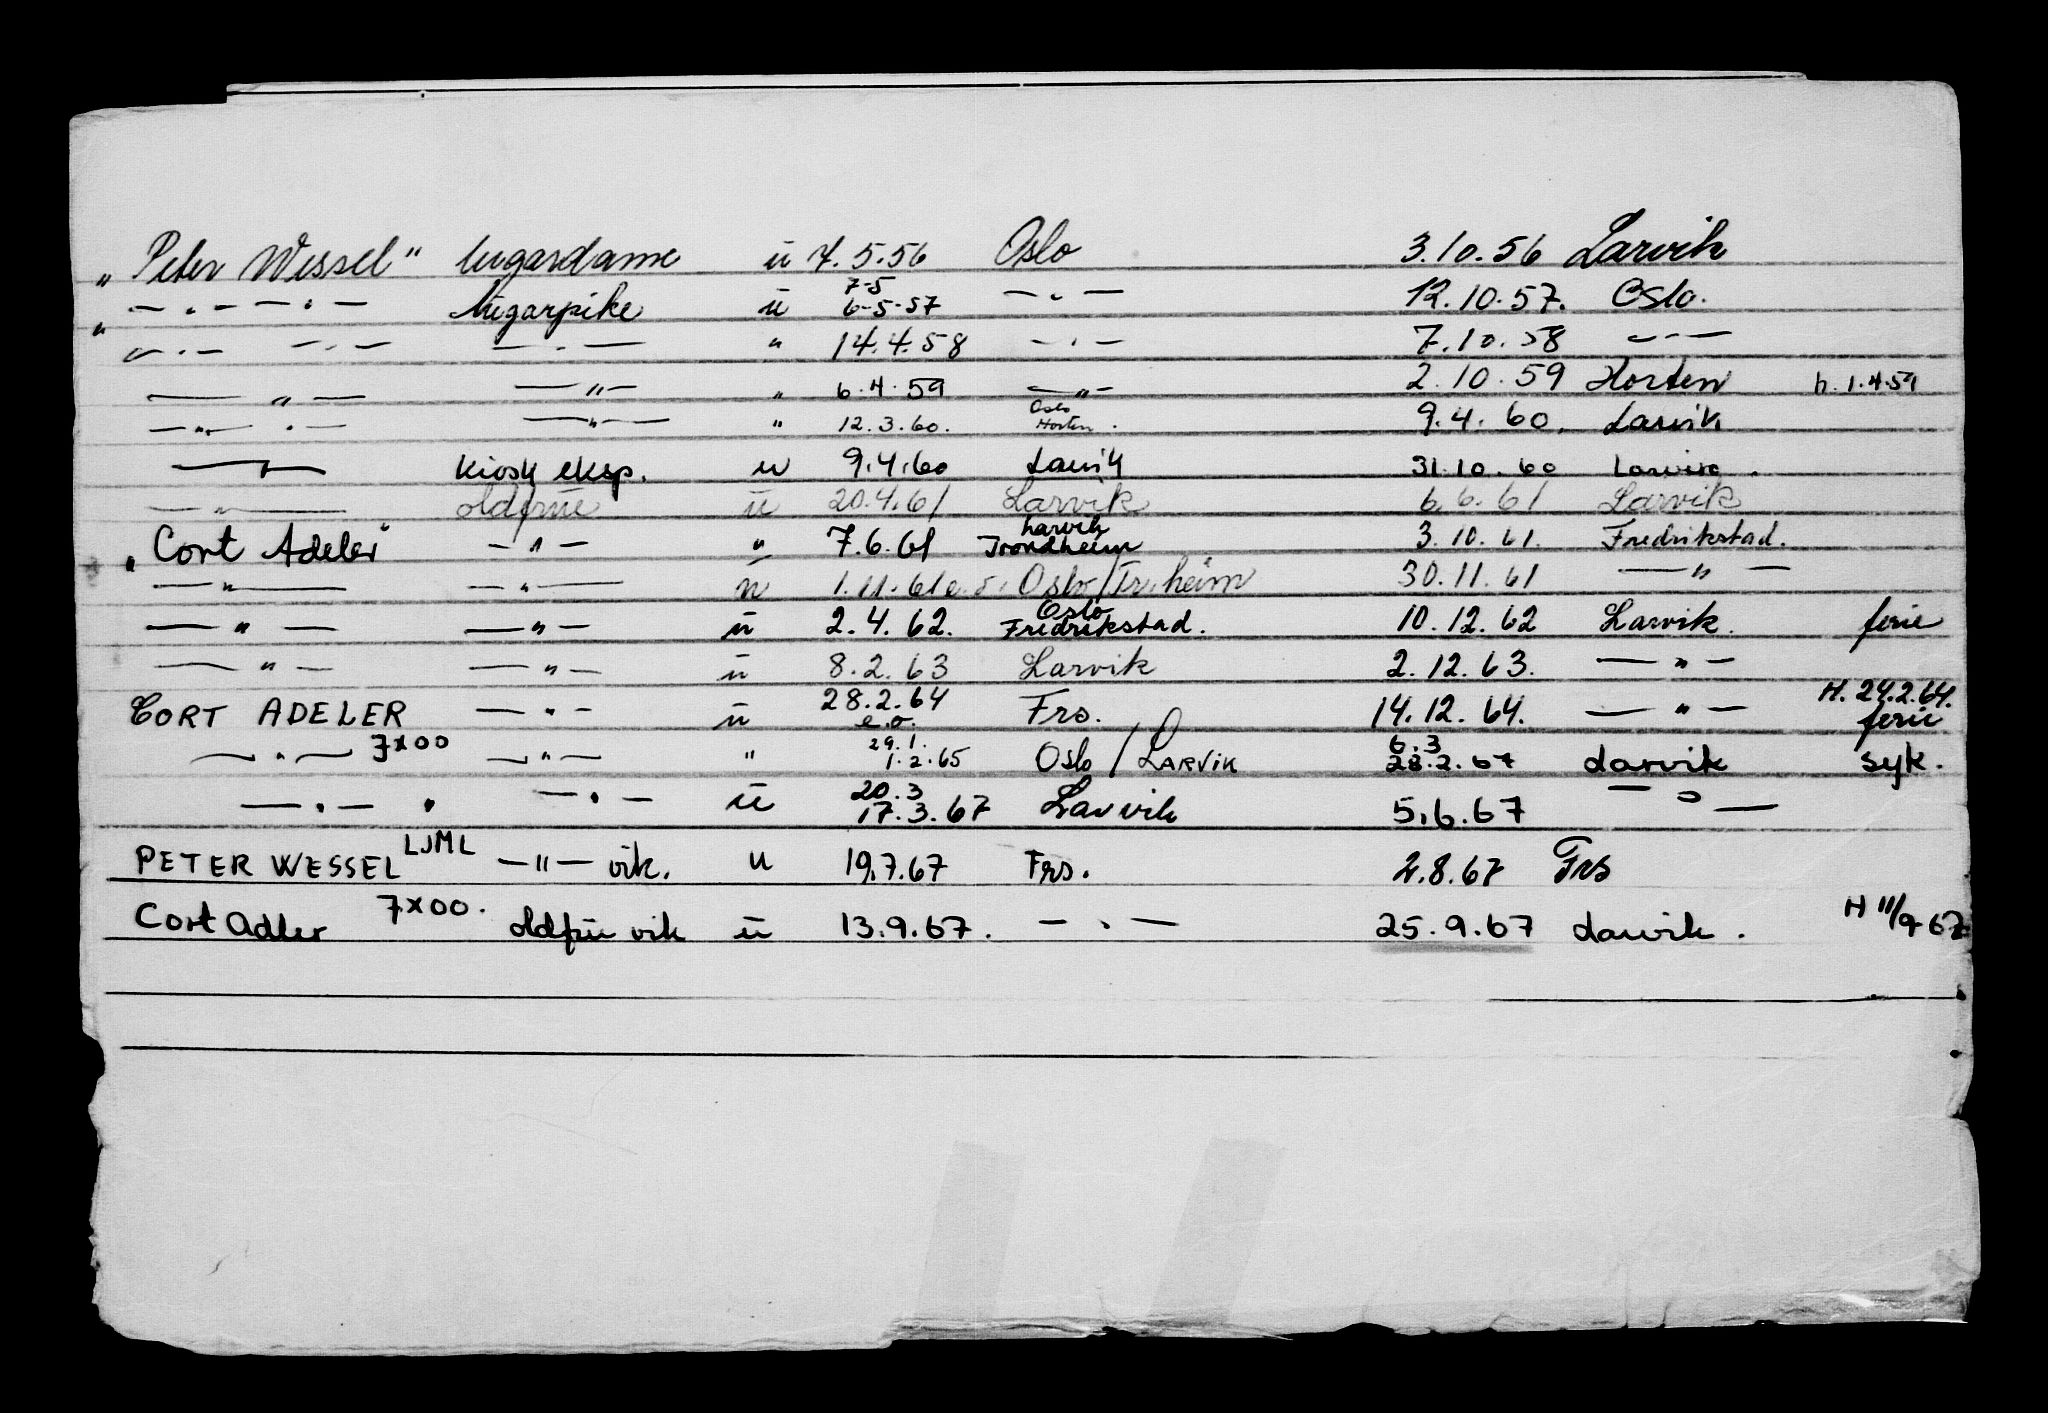 "Peter Wessel" lugardame u 7.5.56 Oslo 3.10.56 Larvik
— " — — " — lugarpike u 7-5 6-5-57 — " — 12.10.57. Oslo.
— " — — " — — " — " 14.4.58 — " — 7.10.58 — " —
— " — — " — " 6.4.59 — " — 2.10.59 Horten h. 1.4.59
— " — " — — " — " 12.3.60. Oslo Horten. 9.4.60. Larvik
— " — Kiosk eksp. u 9.4.60 Larvik 31.10.60 Larvik.
— " — oldfrue u 20.4.61 Larvik 6.6.61 Larvik
"Cort Adeler" — " — " 7.6.61 Larvik Trondheim 3.10.61. Fredrikstad.
— " — — " — u 1.11.61 e.o. Oslo/Tr.heim 30.11.61 — " —
— " — — " — u 2.4.62. Oslo Fredrikstad. 10.12.62 Larvik. ferie
— " — — " — u 8.2.63 Larvik 2.12.63. — " —
CORT ADELER — " — u 28.2.64 e.o. Frs. 14.12.64. — " — H. 24.2.64. ferie
— " — 7x00 — " — " 29.1. 1.2.65 Oslo / LARVIK 6.3 28.2.67 Larvik syk.
— " — " — " — u 20.3 17.3.67 Larvik 5.6.67 — " —
PETER WESSEL LJML — " — vik. u 19.7.67 Frs. 2.8.67 Frs
Cort Adler 7x00. oldfru vik u 13.9.67. — " — 25.9.67 Larvik. H 11/9 67